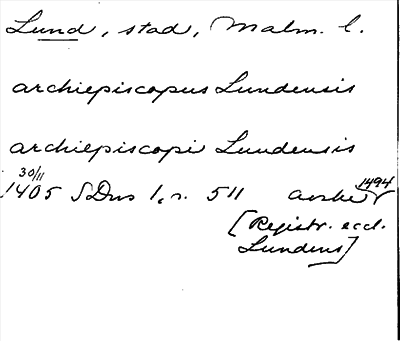 Lund, stad, Malm. l.
archiepiscopus Lundensis
archiepiscopi Lundensis
30/11
1405 SDns 1, n. 511 avskr 1494
[Registr. eccl.
Lundens]